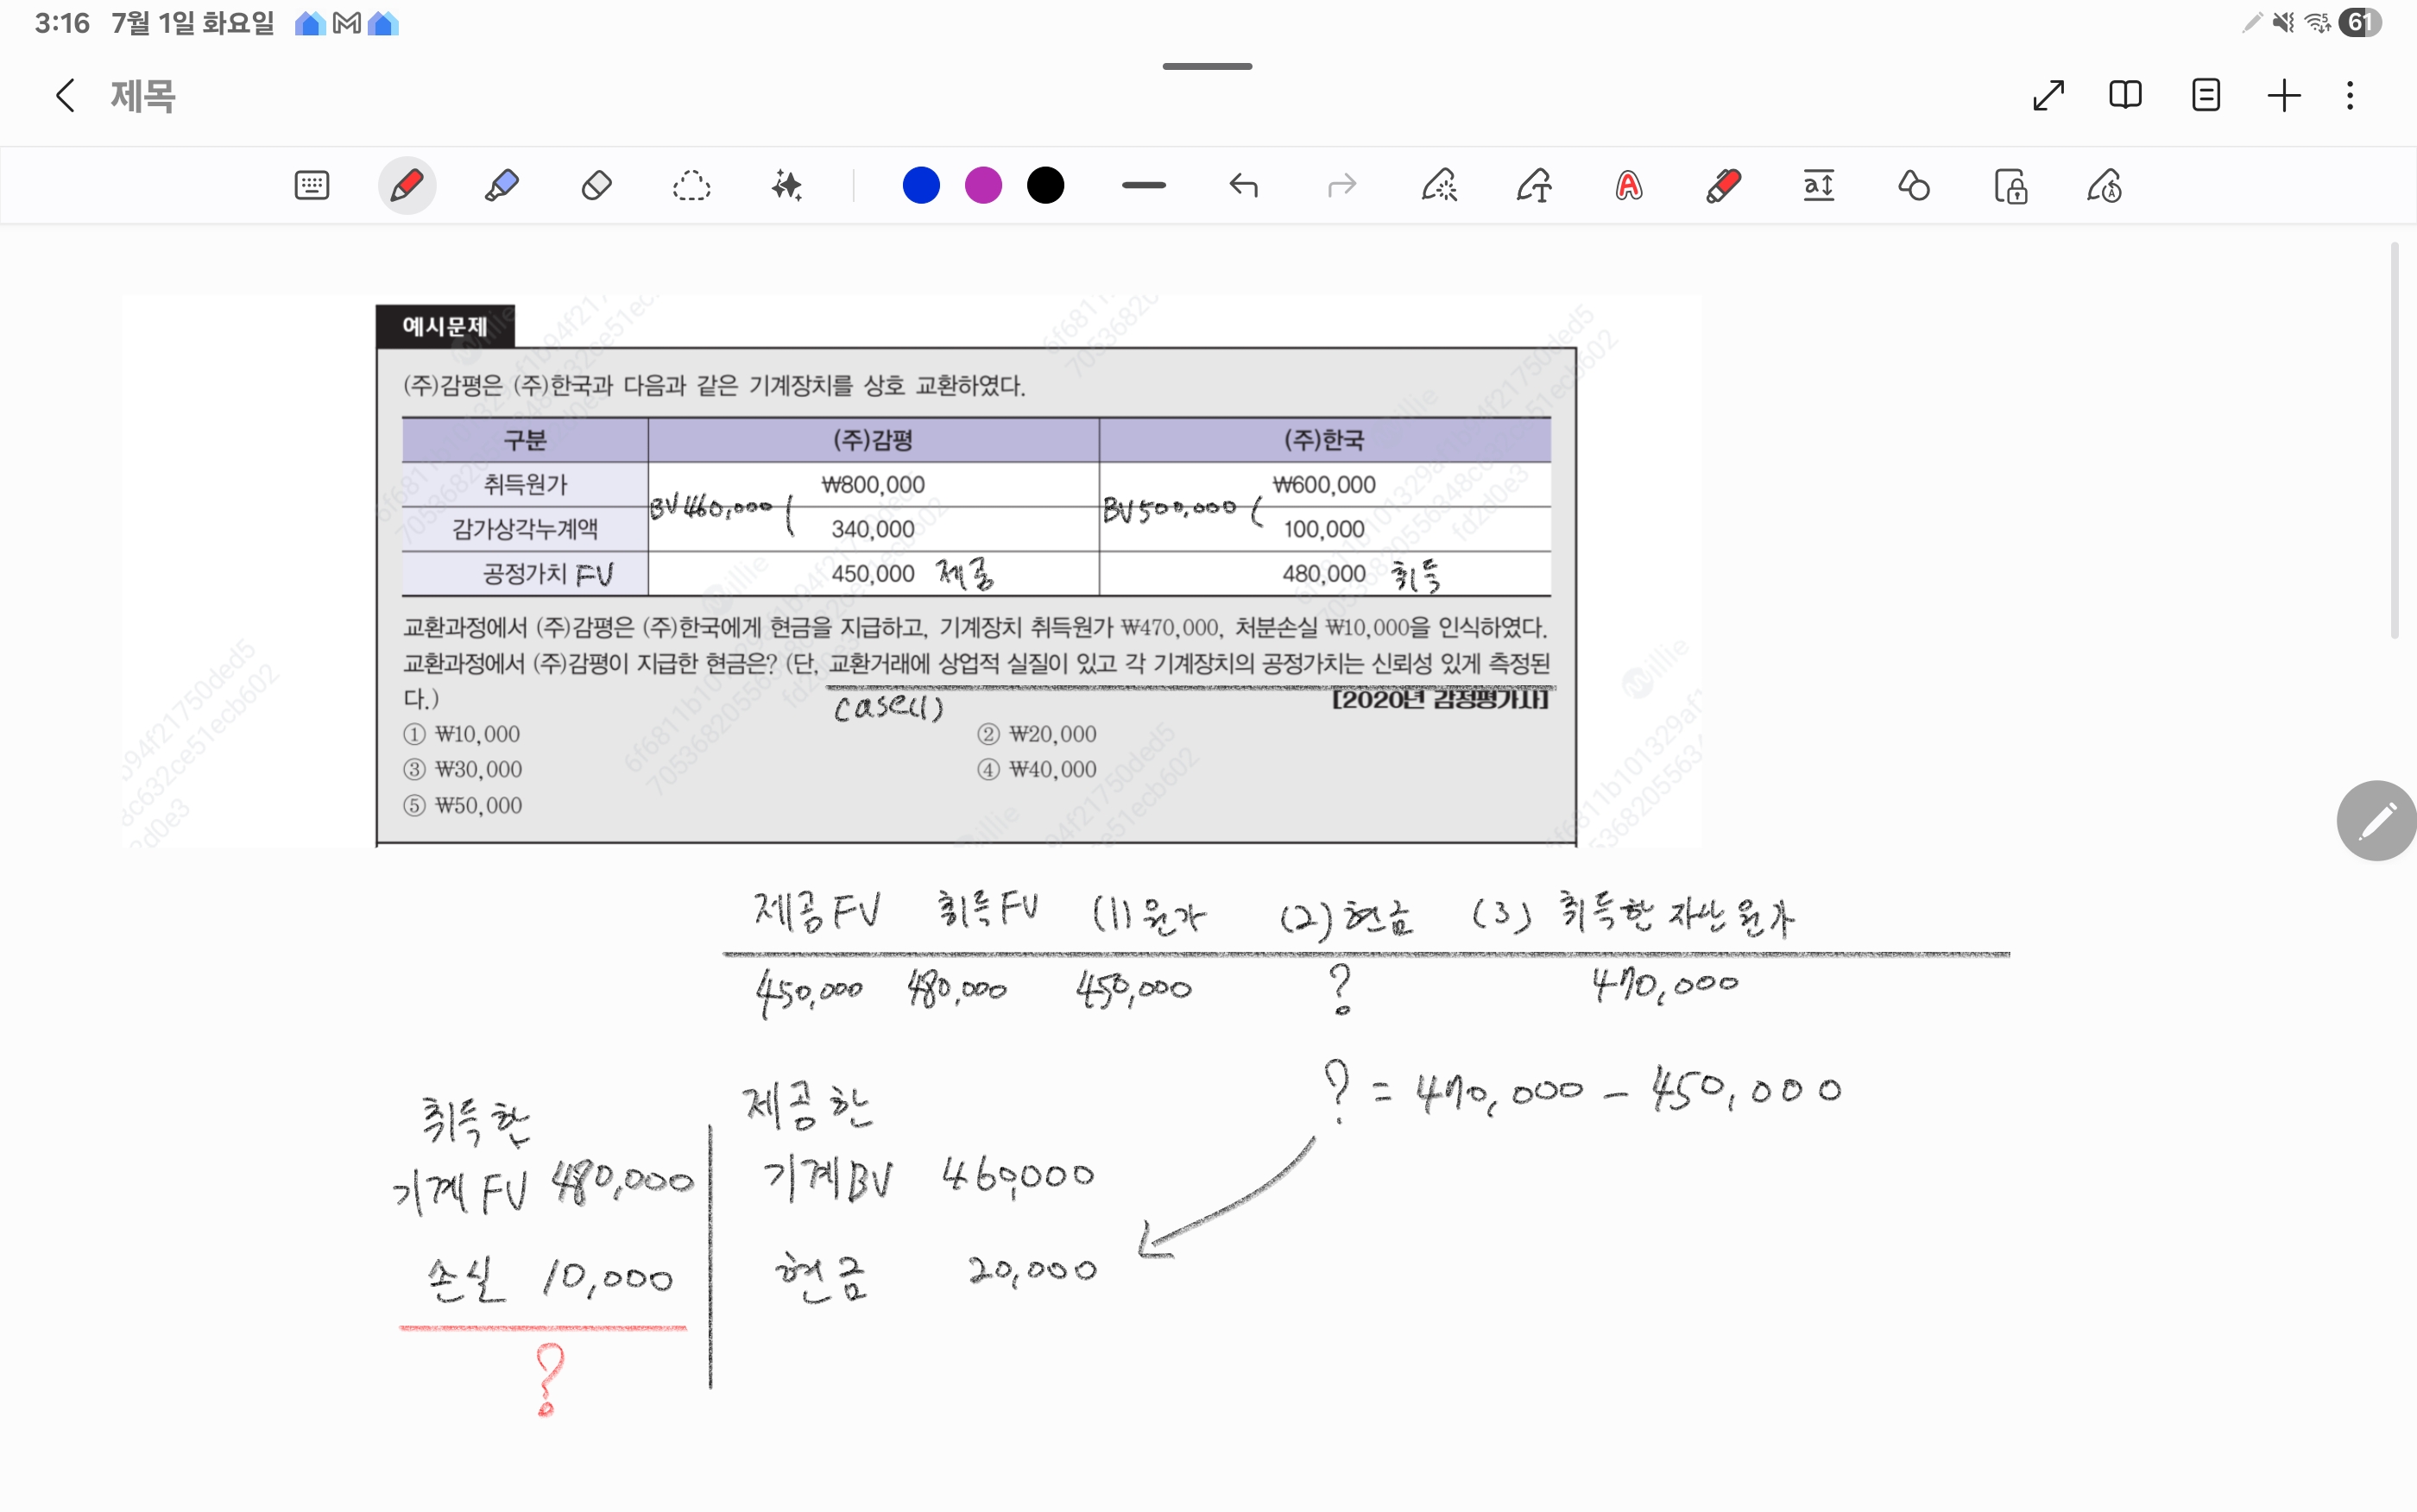 3:16 7월 1일 화요일
61
제목
예시문제
(주)감평은 (주)한국과 다음과 같은 기계장치를 상호 교환하였다.
구분 (주)감평 (주)한국
취득원가 ₩800,000 ₩600,000
BV 460,000 ( BV 500,000 (
감가상각누계액 340,000 100,000
공정가치 FV 450,000 제공 480,000 취득
교환과정에서 (주)감평은 (주)한국에게 현금을 지급하고, 기계장치 취득원가 ₩470,000, 처분손실 ₩10,000을 인식하였다.
교환과정에서 (주)감평이 지급한 현금은? (단, 교환거래에 상업적 실질이 있고 각 기계장치의 공정가치는 신뢰성 있게 측정된
다.) [2020년 감정평가사]
case(1)
① ₩10,000 ② ₩20,000
③ ₩30,000 ④ ₩40,000
⑤ ₩50,000
제공 FV 취득 FV (1) 원가 (2) 현금 (3) 취득한 자산 원가
450,000 480,000 450,000 ? 470,000
? = 470,000 - 450,000
취득한 제공한
기계 FV 480,000 기계 BV 460,000
손실 10,000 현금 20,000
?